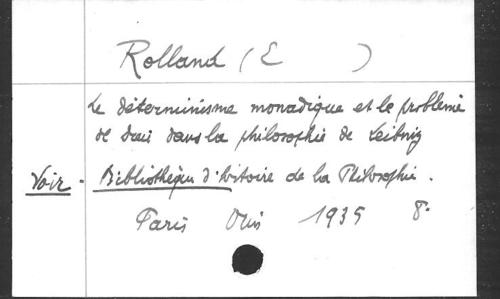 Rolland (E )
Le déterminisme monadique et le problème
de Dieu dans la philosophie de Leibniz
Voir - Bibliothèque d'histoire de la Philosophie.
Paris Vrin 1935 8°